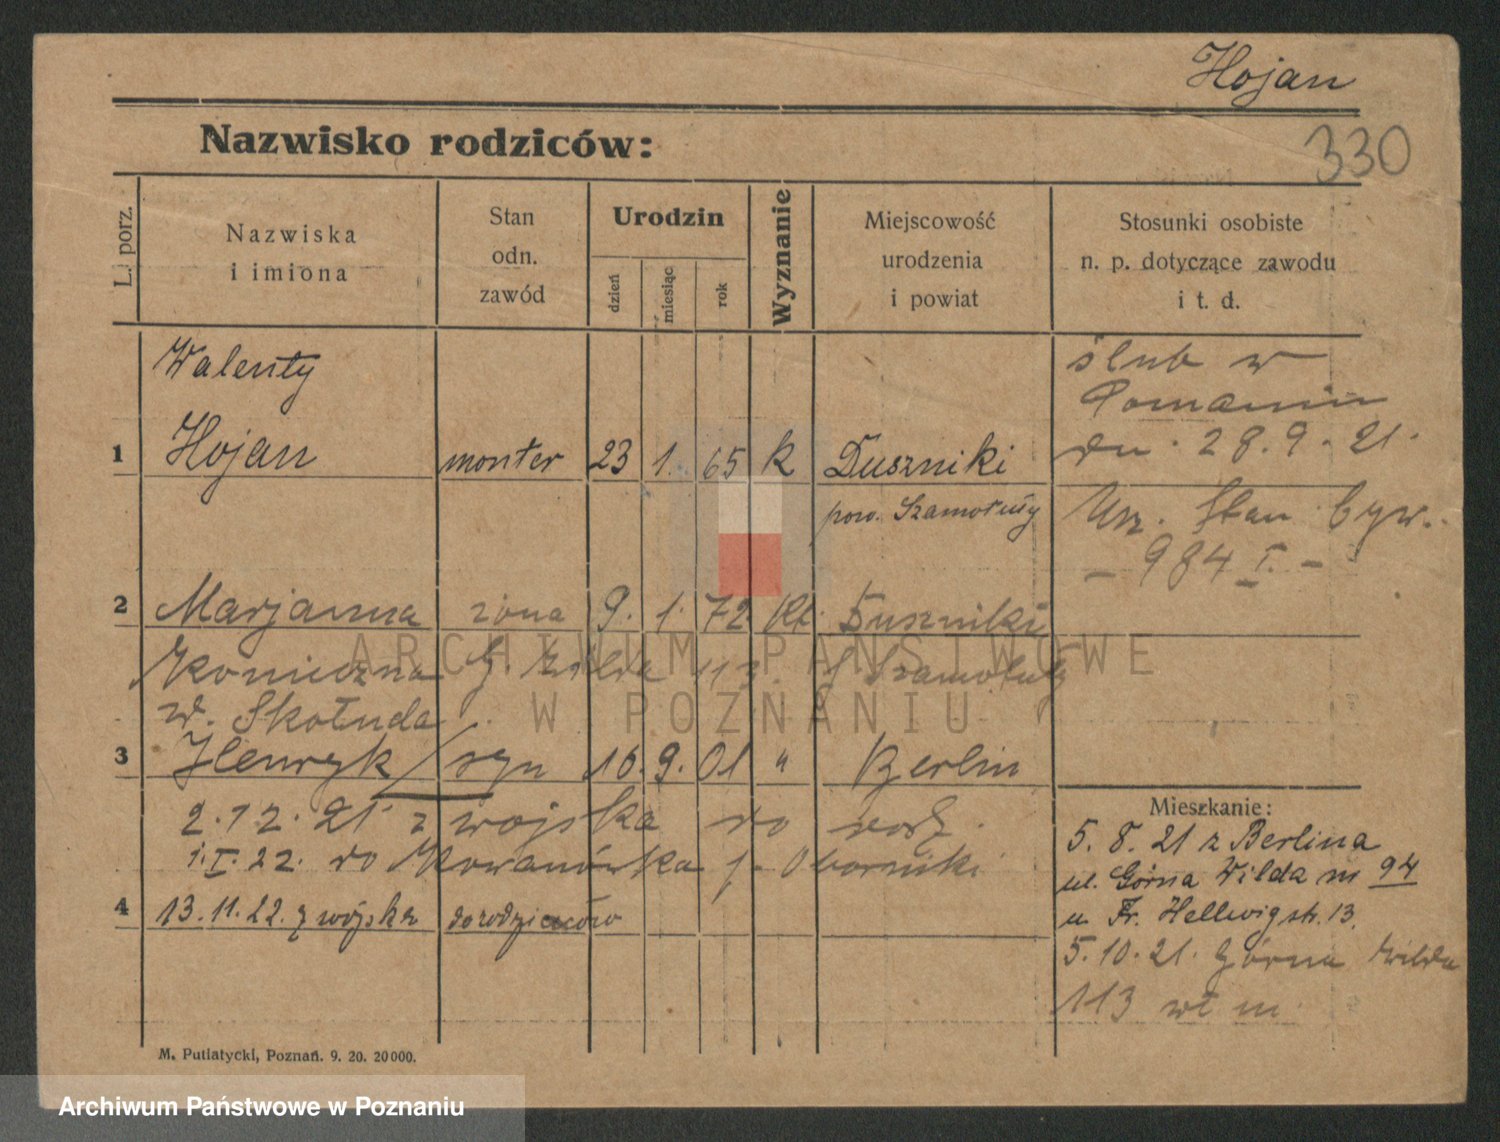 Hojan
Nazwisko rodziców:
330
L. porz.
Nazwiska
i imiona
Stan
odn.
zawód
Urodzin
dzień
miesiąc
rok
Wyznanie
Miejscowość
urodzenia
i powiat
Stosunki osobiste
n. p. dotyczące zawodu
i t. d.
Walenty
1 Hojan monter 23 1. 65 k Duszniki
pow. Szamotuły
ślub w
Poznaniu
dn. 28.9.21.
Urz. Stan. Cyw.
- 984 I. -
2 Marjanna żona 9. 1. 72 kt. Duszniki
Konieczna G. Wilda 113. p. Szamotuły
w. Skołuda
3 Henryk / syn 16. 9. 01 " Berlin
2.12.21 z wojska do rodz.
1.I.22. do Kowanówka p. Oborniki
4 13.11.22. z wojska do rodziców
Mieszkanie:
5. 8. 21 z Berlina
ul. Górna Wilda nr 94
u Fr. Hellwigstr. 13.
5.10.21. Górna Wilda
113 wł m.
M. Putiatycki, Poznań. 9. 20. 20000.
ARCHIWUM PAŃSTWOWE
W POZNANIU
Archiwum Państwowe w Poznaniu